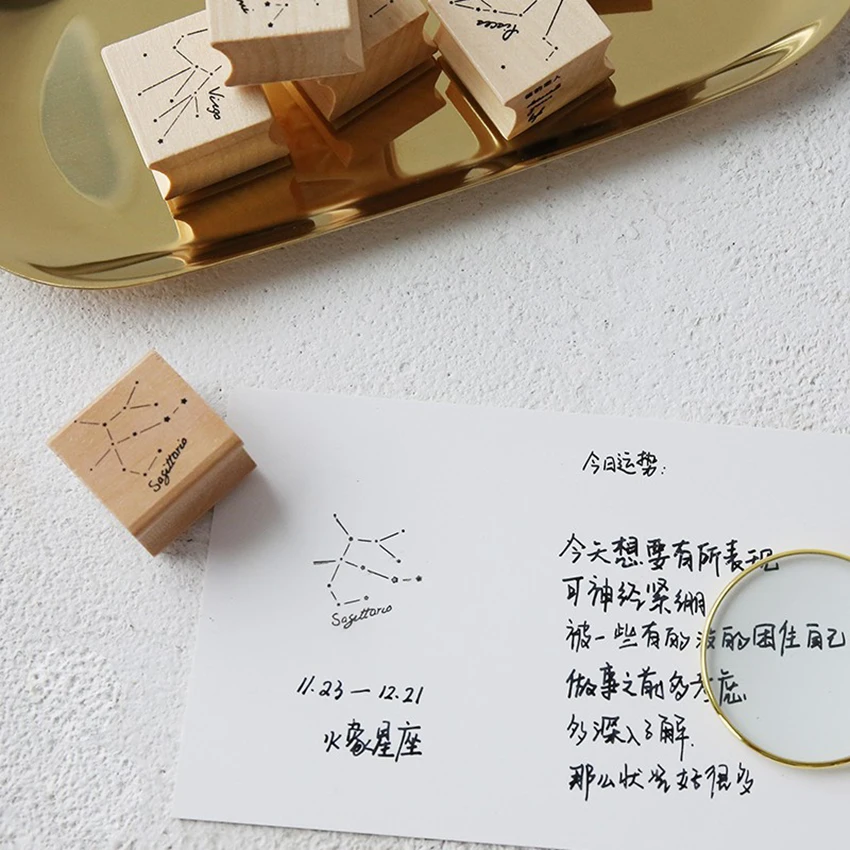 Virgo
Pisces
Sagittario
今日运势:
Sagittario
11.23 — 12.21
火象星座
今天想要有所表现
可神经紧绷
被一些有的没的困住自己
做事之前多考虑
多深入了解.
那么状况好很多